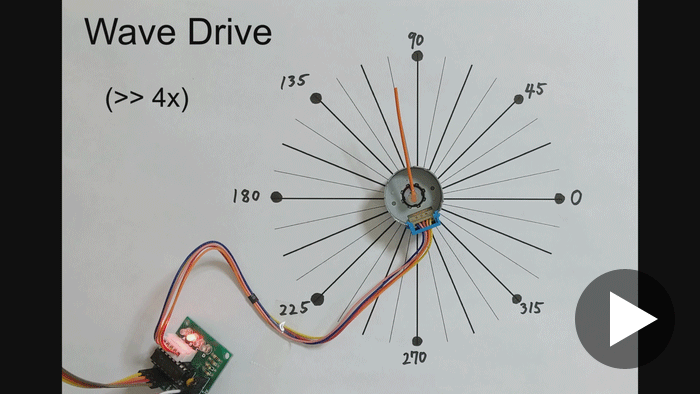 Wave Drive
(>> 4x)
90
135
45
180
0
225
315
270